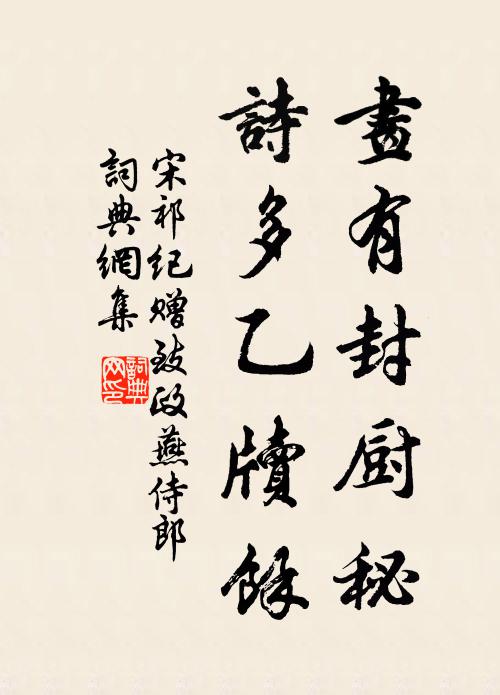 畫有封厨秘
詩多乙牘餘
宋祁纪赠致政燕侍郎
詞典網集
詞典
网印